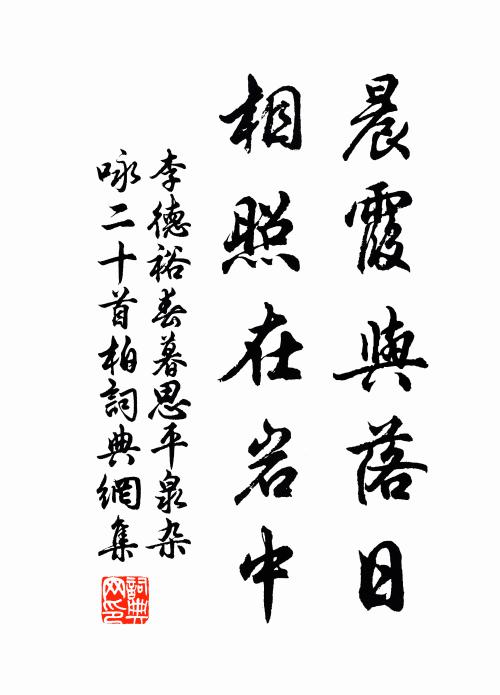 晨霞與落日
相照在岩中
李德裕春暮思平泉杂
咏二十首柏詞典網集
詞典
网印